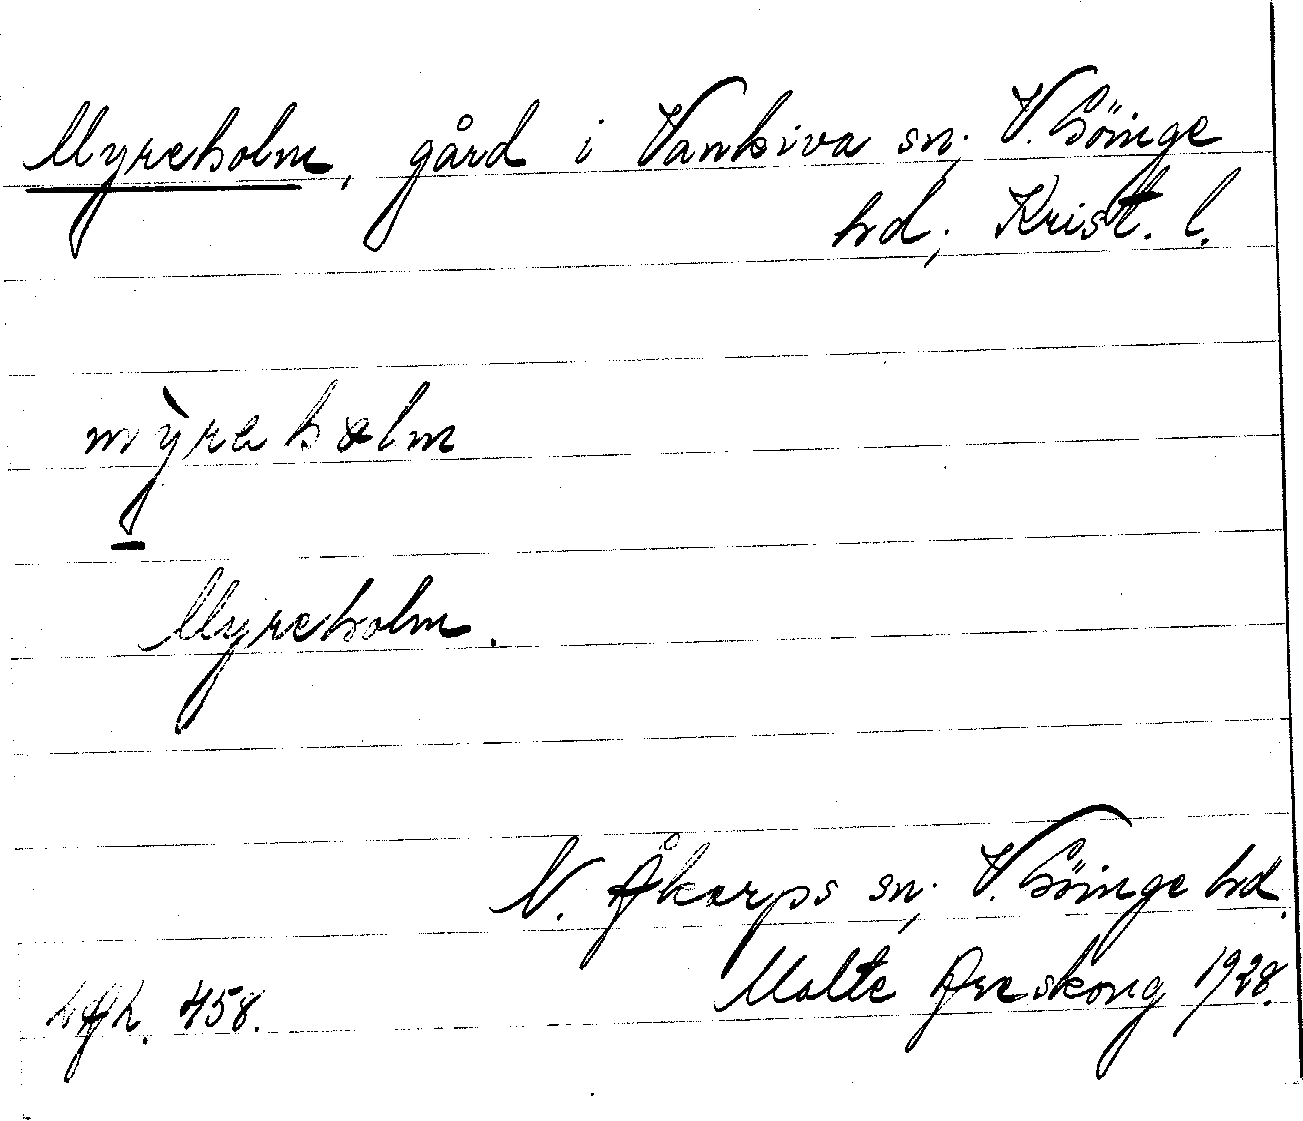 Myreholm, gård i Vankiva sn; V. Göinge
hd; Krist. l.
mỳrahålm
Myreholm.
N. Åkarps sn; V. Göinge hd.
Malte Areskoug 1928.
458.